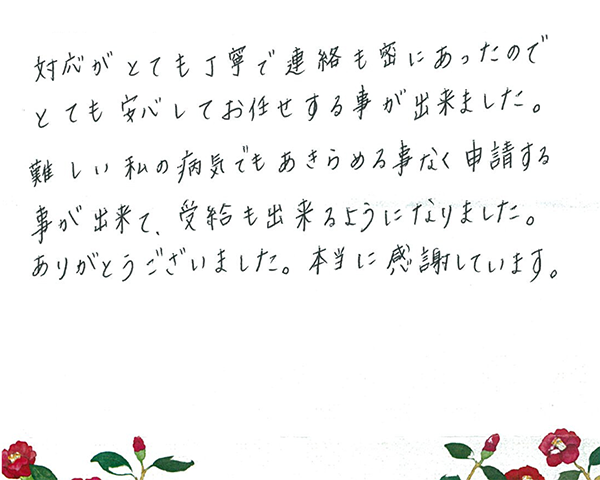 対応がとても丁寧で連絡も密にあったので
とても安心してお任せする事が出来ました。
難しい私の病気でもあきらめる事なく申請する
事が出来て、受給も出来るようになりました。
ありがとうございました。本当に感謝しています。